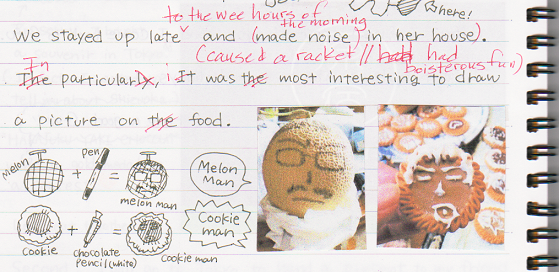 here!
to the wee hours of
the morning
We stayed up late (made noise) in her house).
(caused a racket // had had
boisterous fun)
In
The particularly, i It was the most interesting to draw
a picture on the food.
Melon + pen = melon man
Melon
Man
Cookie + chocolate
pencil (white) = Cookie man
Cookie
man